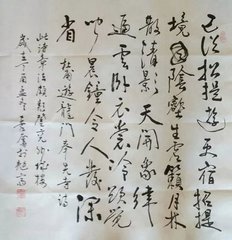 已從招提遊更宿招提
境陰壑生虛籟月林
散清影天闕象緯
逼雲卧衣裳冷欲覺
聞晨鐘令人發深
省
杜甫遊龍門奉先寺詩
此詩章法
丁酉孟冬